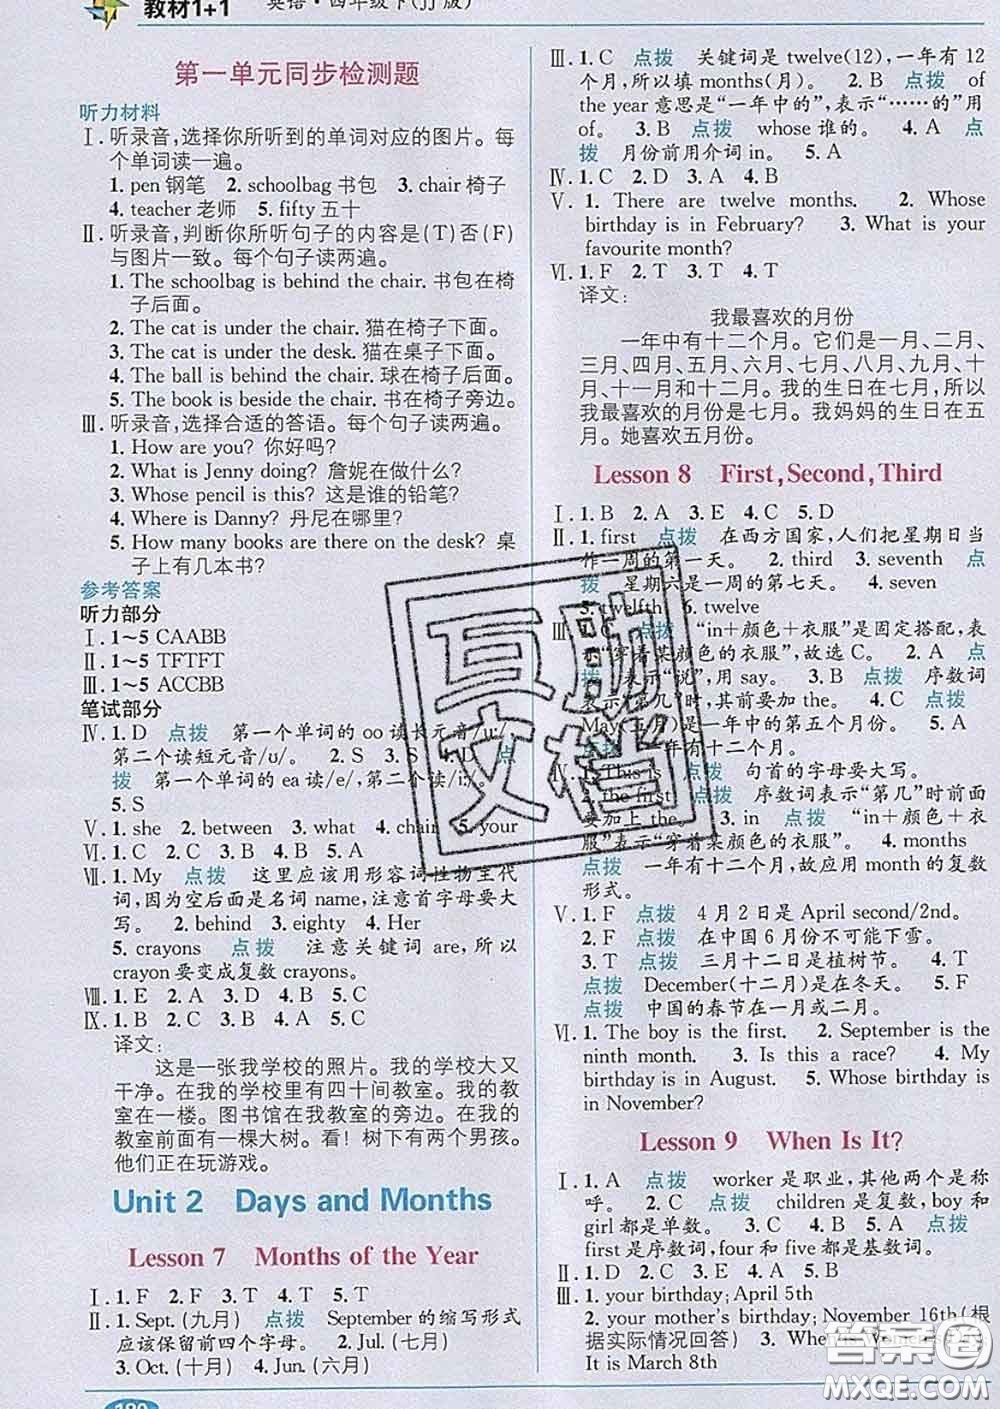 教材1+1 英语·四年级下(JJ版)
第一单元同步检测题
听力材料
Ⅰ. 听录音,选择你所听到的单词对应的图片。每
个单词读一遍。
1. pen 钢笔 2. schoolbag 书包 3. chair 椅子
4. teacher 老师 5. fifty 五十
Ⅱ. 听录音,判断你所听句子的内容是(T)否(F)
与图片一致。每个句子读两遍。
1. The schoolbag is behind the chair. 书包在椅
子后面。
2. The cat is under the chair. 猫在椅子下面。
3. The cat is under the desk. 猫在桌子下面。
4. The ball is behind the chair. 球在椅子后面。
5. The book is beside the chair. 书在椅子旁边。
Ⅲ. 听录音,选择合适的答语。每个句子读两遍。
1. How are you? 你好吗?
2. What is Jenny doing? 詹妮在做什么?
3. Whose pencil is this? 这是谁的铅笔?
4. Where is Danny? 丹尼在哪里?
5. How many books are there on the desk? 桌
子上有几本书?
参考答案
听力部分
Ⅰ. 1~5 CAABB
Ⅱ. 1~5 TFTFT
Ⅲ. 1~5 ACCBB
笔试部分
Ⅳ. 1. D 点拨 第一个单词的 oo 读长元音/uː/,
第二个读短元音/ʊ/。 2. S 3. S 4. D 点
拨 第一个单词的 ea 读/e/,第二个读/iː/。
5. S
Ⅴ. 1. she 2. between 3. what 4. chair 5. your
Ⅵ. 1. C 2. C 3. C 4. B 5. A
Ⅶ. 1. My 点拨 这里应该用形容词性物主代
词,因为空后面是名词 name,注意首字母要大
写。 2. behind 3. eighty 4. Her
5. crayons 点拨 注意关键词 are,所以
crayon 要变成复数 crayons。
Ⅷ. 1. E 2. A 3. D 4. B 5. C
Ⅸ. 1. C 2. B 3. C 4. C 5. A
译文:
这是一张我学校的照片。我的学校大又
干净。在我的学校里有四十间教室。我的教
室在一楼。图书馆在我教室的旁边。在我的
教室前面有一棵大树。看!树下有两个男孩。
他们正在玩游戏。
Unit 2 Days and Months
Lesson 7 Months of the Year
Ⅰ. 1. F 2. F 3. T 4. T 5. T
Ⅱ. 1. Sept. (九月) 点拨 September 的缩写形式
应该保留前四个字母。 2. Jul. (七月)
3. Oct. (十月) 4. Jun. (六月)
180
Ⅲ. 1. C 点拨 关键词是 twelve(12),一年有 12
个月,所以填 months(月)。 2. B 点拨 of
the year 意思是“一年中的”,表示“……的”用
of。 3. B 点拨 whose 谁的。 4. A 点
拨 月份前用介词 in。 5. A
Ⅳ. 1. C 2. D 3. A 4. B
Ⅴ. 1. There are twelve months. 2. Whose
birthday is in February? 3. What is your
favourite month?
Ⅵ. 1. F 2. T 3. T 4. T
译文:
我最喜欢的月份
一年中有十二个月。它们是一月、二月、
三月、四月、五月、六月、七月、八月、九月、十
月、十一月和十二月。我的生日在七月,所以
我最喜欢的月份是七月。我妈妈的生日在五
月。她喜欢五月份。
Lesson 8 First, Second, Third
Ⅰ. 1. B 2. A 3. E 4. C 5. D
Ⅱ. 1. first 点拨 在西方国家,人们把星期日当
作一周的第一天。 2. third 3. seventh 点
拨 星期六是一周的第七天。 4. seven
5. twelfth 6. twelve
Ⅲ. 1. C 点拨 “in+颜色+衣服”是固定搭配,表
示“穿着某颜色的衣服”,故选 C。 2. A 点
拨 表示“说”,用 say。 3. B 点拨 序数词
表示“第几”时,其前要加 the。 4. C 点拨
May(五月)是一年中的第五个月份。 5. A
点拨 一年有十二个月。
Ⅳ. 1. This is 点拨 句首的字母要大写。
2. the first 点拨 序数词表示“第几”时前面
要加上 the。 3. in 点拨 “in+颜色+衣
服”表示“穿着某颜色的衣服”。 4. months
点拨 一年有十二个月,故应用 month 的复数
形式。
Ⅴ. 1. F 点拨 4 月 2 日是 April second/2nd。
2. F 点拨 在中国 6 月份不可能下雪。
3. T 点拨 三月十二日是植树节。 4. T
点拨 December(十二月)是在冬天。 5. F
点拨 中国的春节在一月或二月。
Ⅵ. 1. The boy is the first. 2. September is the
ninth month. 3. Is this a race? 4. My
birthday is in August. 5. Whose birthday is
in November?
Lesson 9 When Is It?
Ⅰ. 1. A 点拨 worker 是职业,其他两个是称
呼。 2. C 点拨 children 是复数,boy 和
girl 都是单数。 3. C 4. B 5. A 点拨
first 是序数词,four 和 five 都是基数词。
Ⅱ. 1. C 2. D 3. E 4. A 5. B
Ⅲ. 1. your birthday; April 5th
2. your mother's birthday; November 16th(根
据实际情况回答) 3. When is Women's Day?
It is March 8th
互助文档
答案圈
MXQE.COM